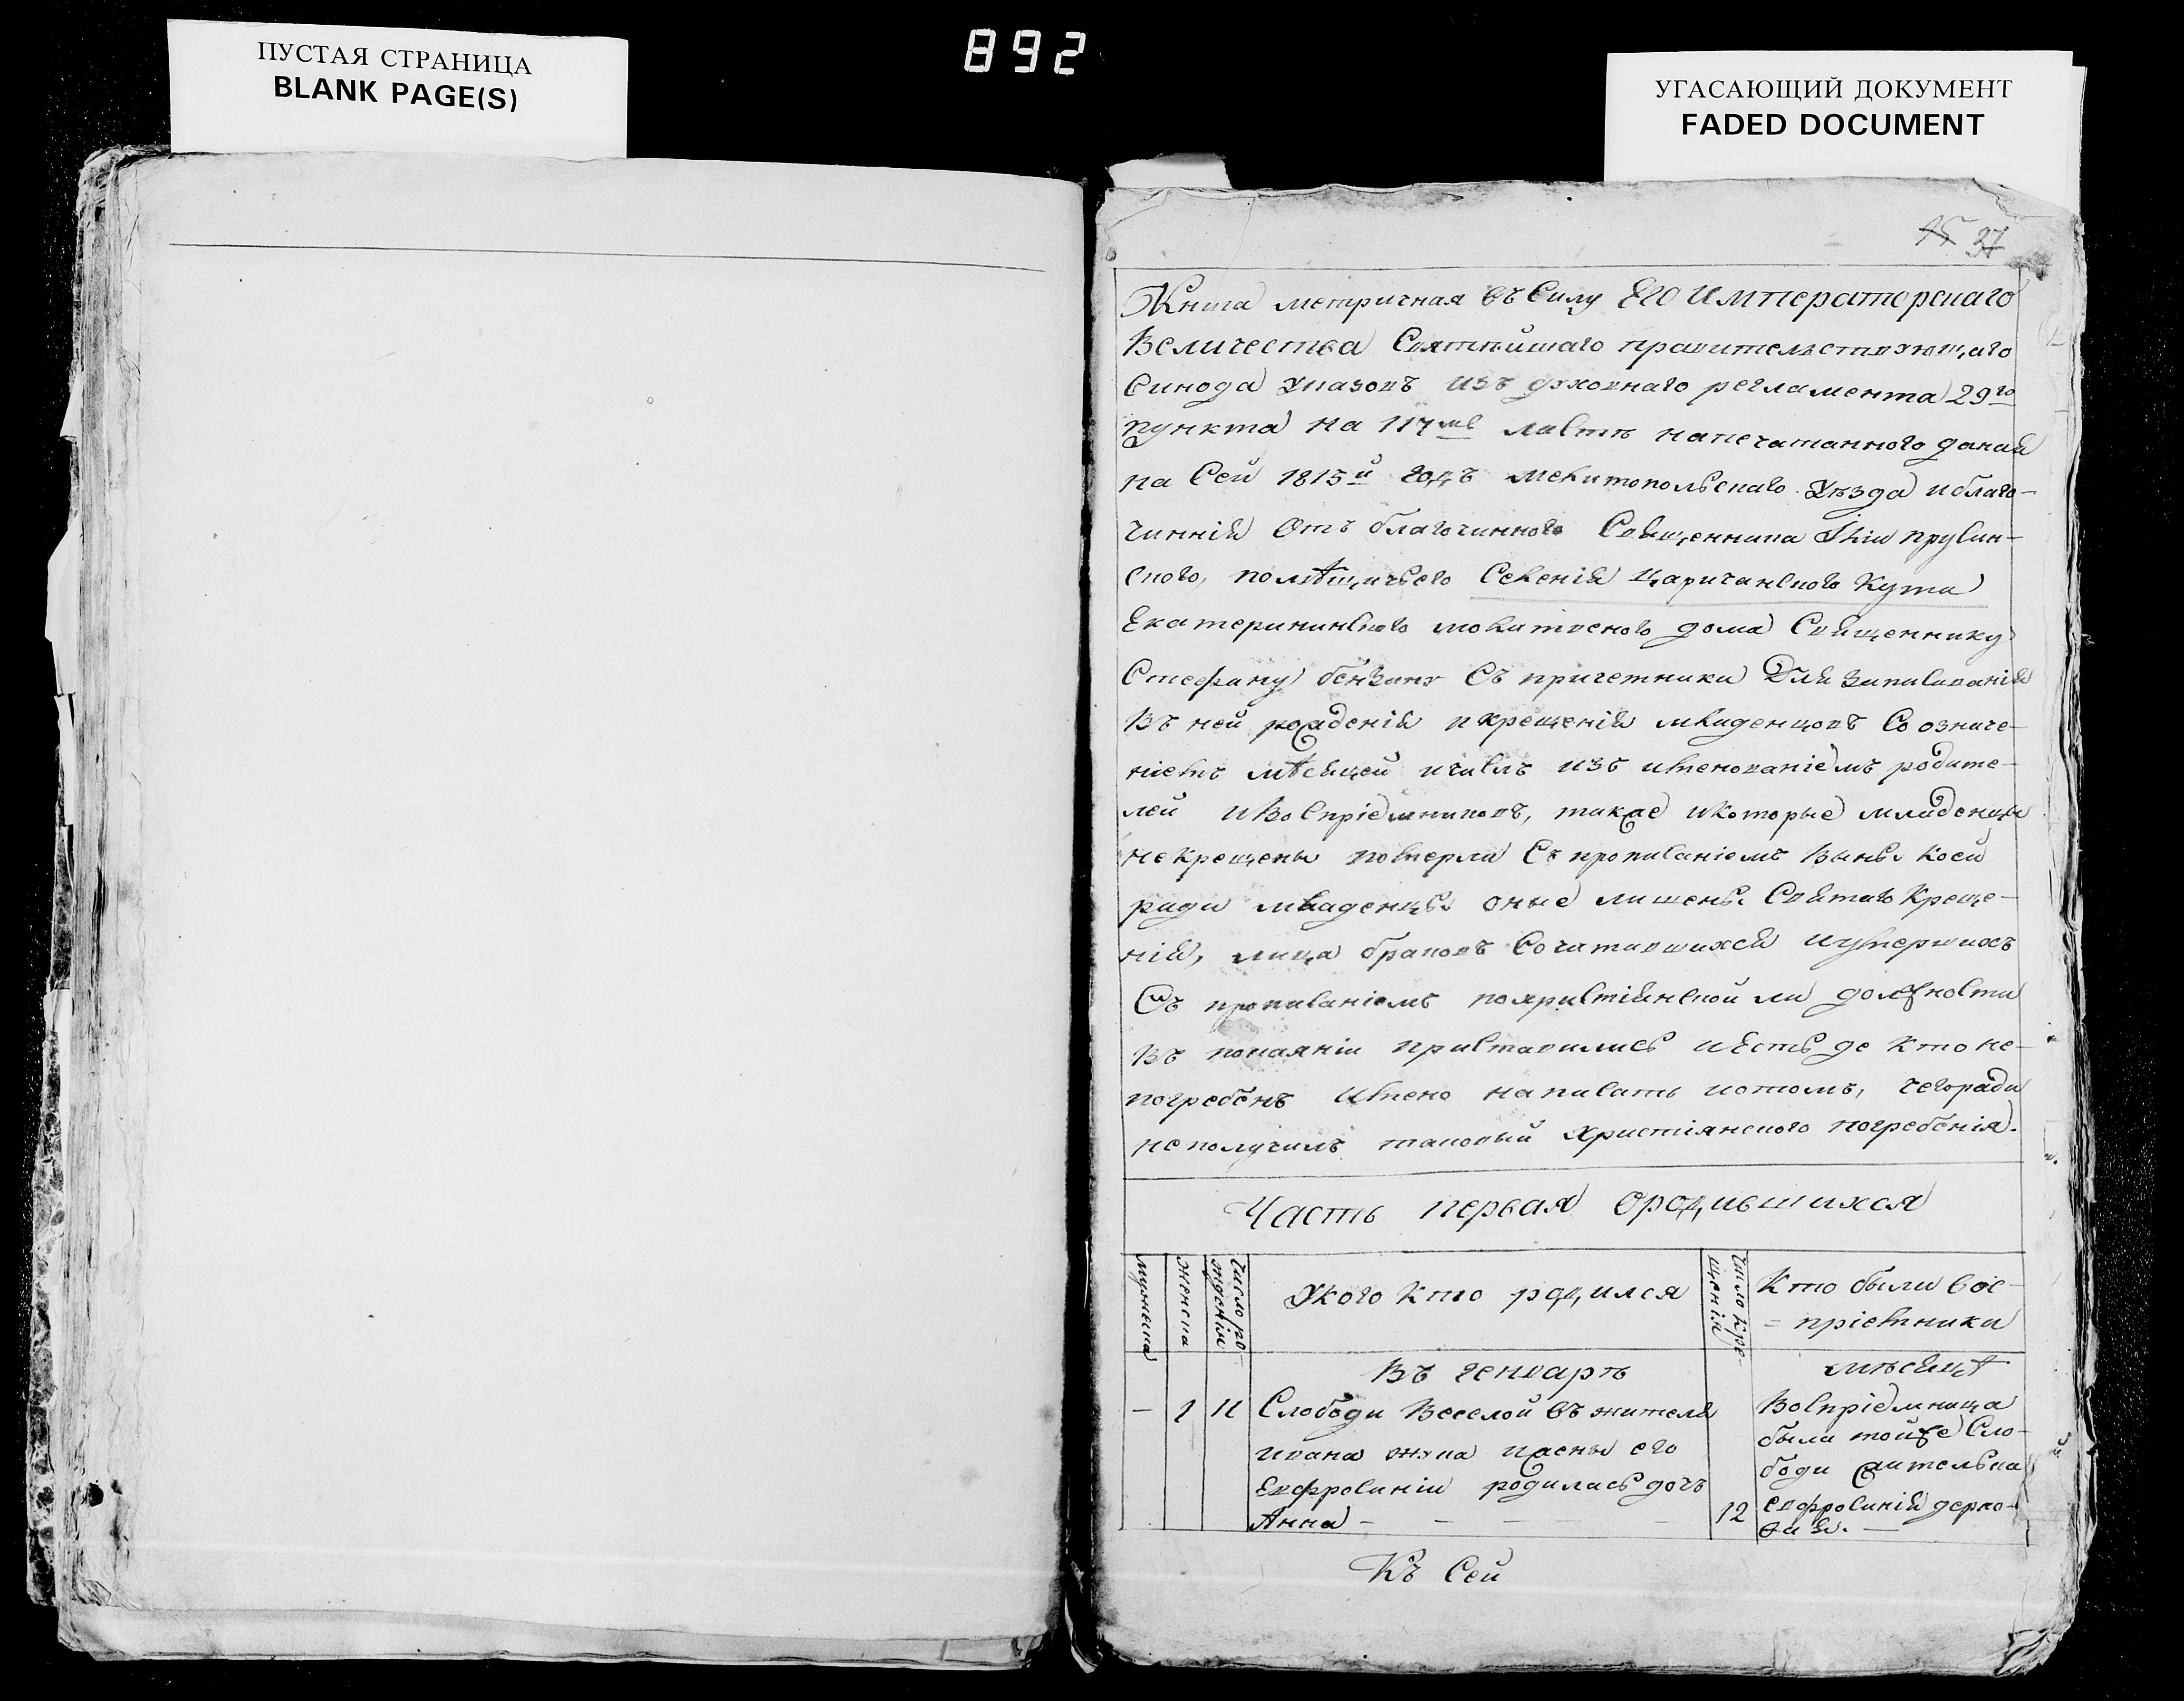 ПУСТАЯ СТРАНИЦА
BLANK PAGE(S)
892
УГАСАЮЩИЙ ДОКУМЕНТ
FADED DOCUMENT
37
Книга метричная въ Силу Его Императорскаго
Величества Святѣйшаго правительствующаго
Синода указовъ изъ духовнаго регламента 29го
пункта на 117мъ листѣ напечатанного даная
на Сей 1815й годъ мелитопольскаго уѣзда и благо-
чиннiя Отъ благочинного Священника
помѣщичьего Селенiя Царичанского Кута
Екатерининского молитвеного дома Священнику
Стефану съ причетники Для записыванiя
Въ ней рожденiя и крещенiя младенцовъ Со означе-
нiемъ мѣсяцей и числъ изъ именованiемъ родите-
лей и Воспрiемниковъ, также и которые младенцы
не крещены померли Съ прописанiемъ Вины коея
ради младенцы оные лишены Святаго Креще-
нiя, лица браковъ Сочатавшихся и умершихъ
Съ прописанiемъ по христiянской ли должности
Въ покаянiи приставились и есть де кто не-
погребенъ имено написать и о томъ, чего ради
не получилъ таковый христiянского погребенiя.
Часть первая о родившихся
мужеска
женска
число ро-
жденiя
У кого кто родился
число Кре-
щенiя
Кто были вос-
= прiемники
Въ генварѣ
мѣсяцѣ
— 1 11 Слободи Веселой въ жителя
ивана жука и жены его
Евфросинiи родилась дочь
Анна —
12
Воспрiемница
была той же Сло-
боди жителька
Евфросинiя
Къ Сей